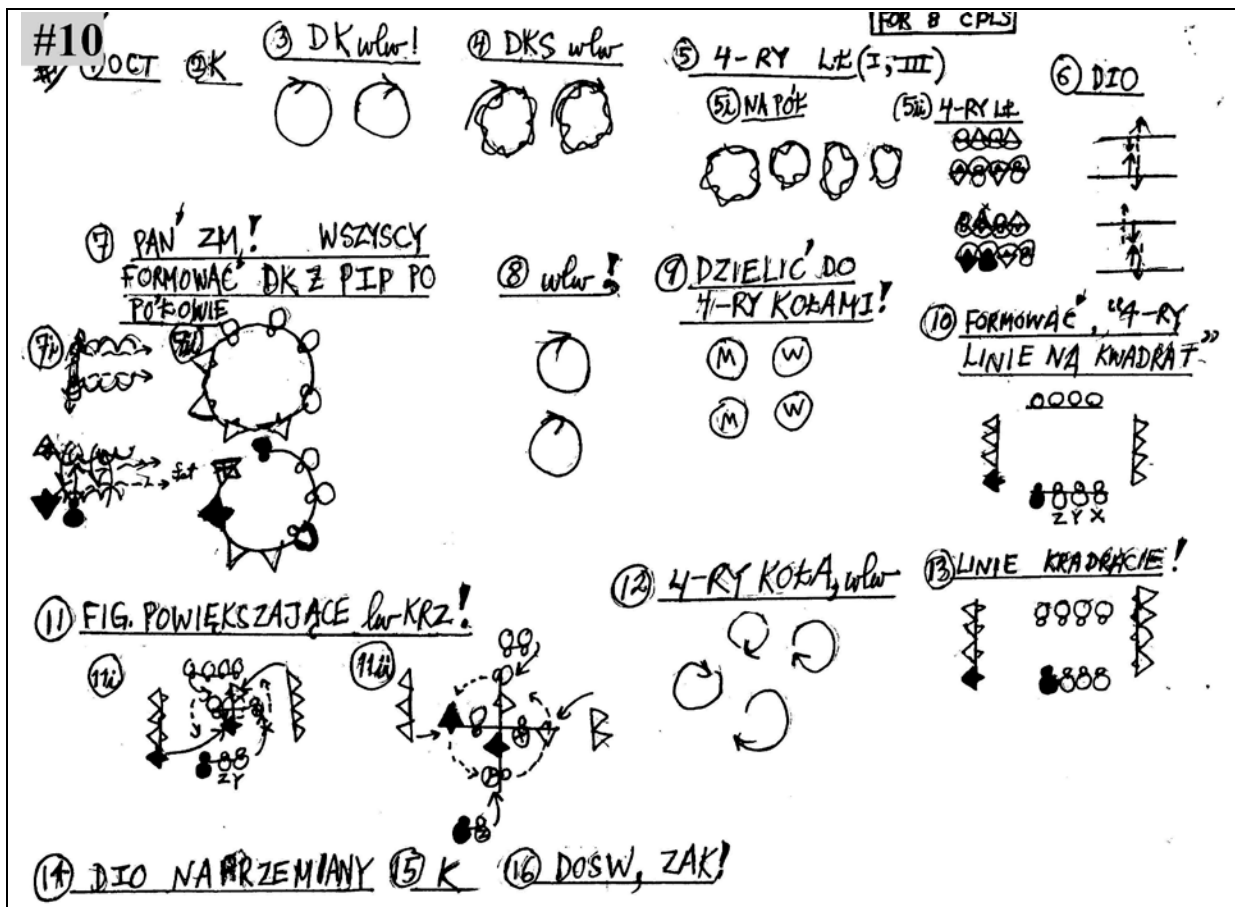 #10
FOR 8 CPLS
① OCT ② K ③ DK wlw! ④ DKS wlw ⑤ 4-RY LŁ (I, III) ⑥ DIO
5i NA PÓŁ 5ii 4-RY LŁ
⑦ PAŃ ZM! WSZYSCY
FORMOWAĆ DK Z PIP PO
POŁOWIE
7i 7ii
⑧ wlw!
⑨ DZIELIĆ DO
4-RY KOŁAMI!
M W
M W
⑩ FORMOWAĆ, "4-RY
LINIE NA KWADRAT"
Z Y X
⑪ FIG. POWIĘKSZAJĄCE lw KRZ!
11i 11ii
X
Z Y
X
Z
⑫ 4-RY KOŁA, wlw
⑬ LINIE KRADRACIE!
⑭ DIO NAPRZEMIANY ⑮ K ⑯ DOSW, ZAK!